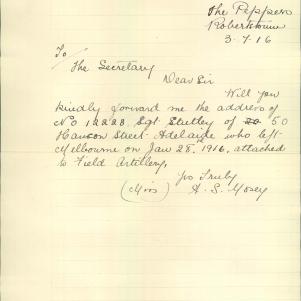 The Peppers
Robertstown
3-7-16
To
The Secretary
Dear Sir
Will you
kindly forward me the address of
No 12223, Sgt Stutley of 50
Hanson Street Adelaide who left
Melbourne on Jan 28th 1916, attached
to Field Artillery,
Yrs Truly
(Mrs) A. S. Mosey